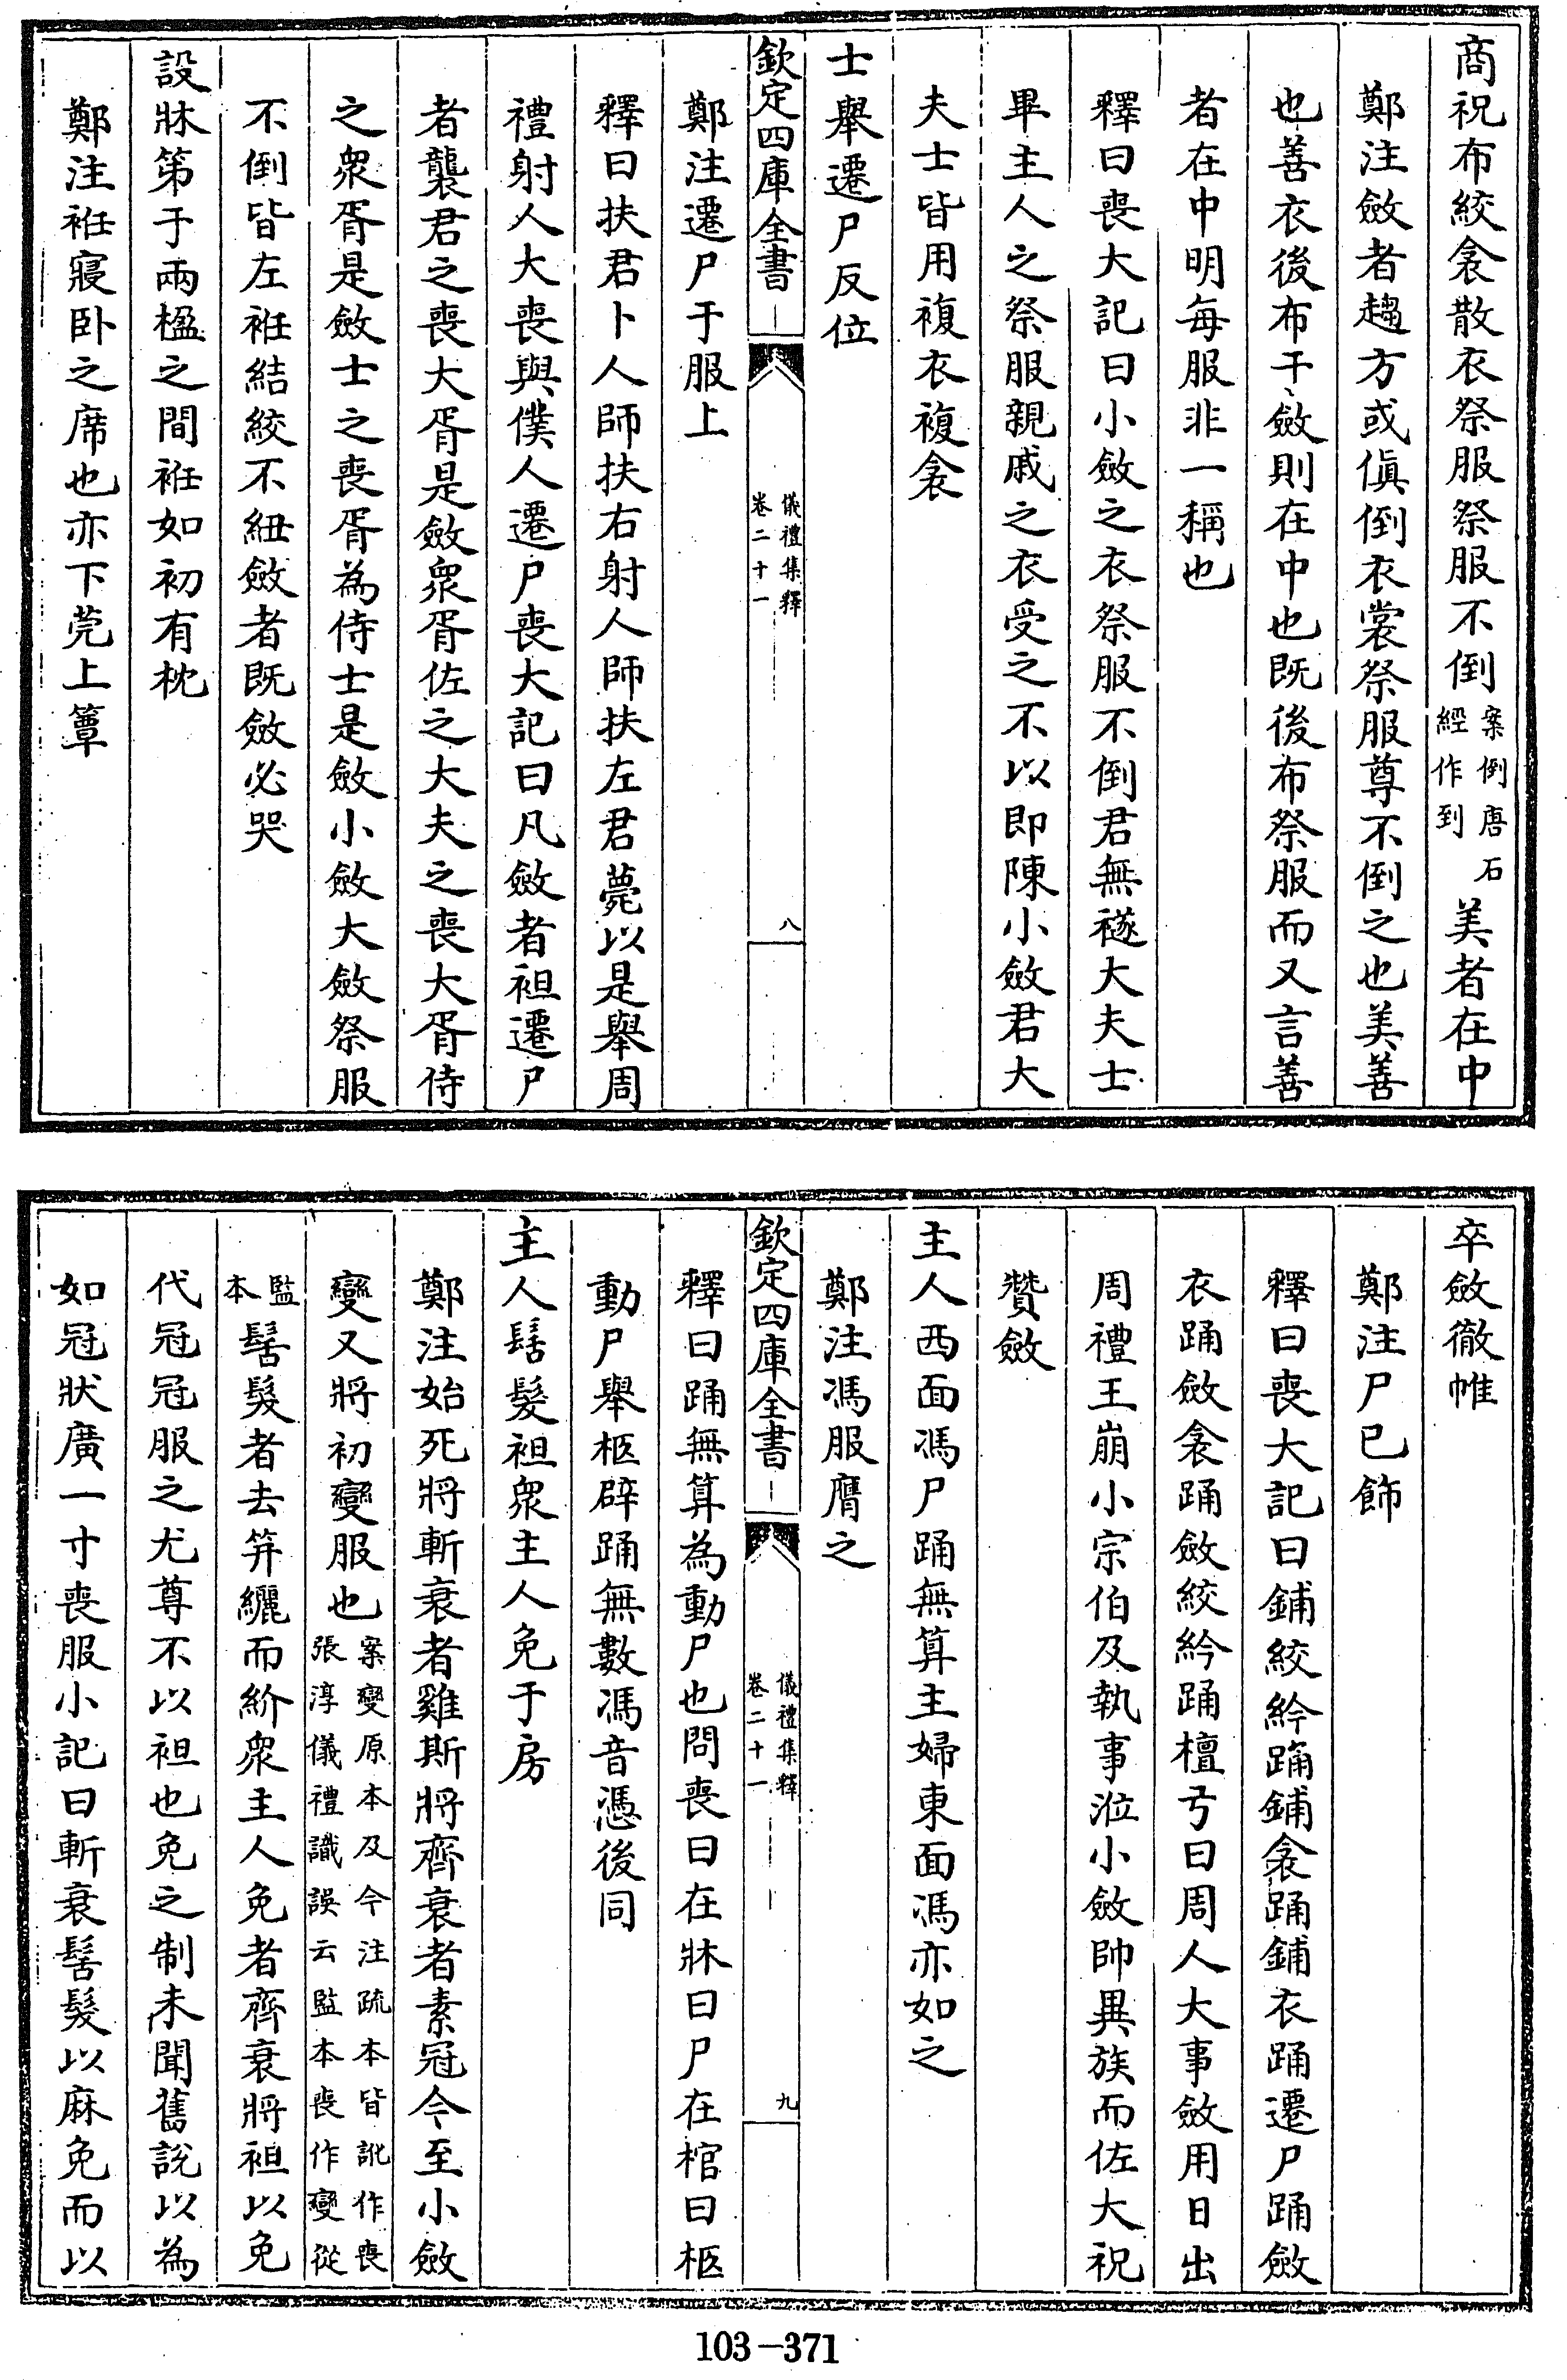 商祝布絞衾散衣祭服祭服不倒案倒唐石經作到美者在中
鄭注斂者趨方或傎倒衣裳祭服尊不倒之也美善
也善衣後布于斂則在中也既後布祭服而又言善
者在中明每服非一稱也
釋曰喪大記曰小斂之衣祭服不倒君無襚大夫士
畢主人之祭服親戚之衣受之不以即陳小斂君大
夫士皆用複衣複衾
士舉遷尸反位
欽定四庫全書
儀禮集釋
卷二十一
八
鄭注遷尸于服上
釋曰扶君卜人師扶右射人師扶左君薨以是舉周
禮射人大喪與僕人遷尸喪大記曰凡斂者袒遷尸
者襲君之喪大胥是斂衆胥佐之大夫之喪大胥侍
之衆胥是斂士之喪胥為侍士是斂小斂大斂祭服
不倒皆左衽結絞不紐斂者既斂必哭
設牀笫于兩楹之間衽如初有枕
鄭注衽寢卧之席也亦下莞上簟
卒斂徹帷
鄭注尸已飾
釋曰喪大記曰鋪絞紟踊鋪衾踊鋪衣踊遷尸踊斂
衣踊斂衾踊斂絞紟踊檀弓曰周人大事斂用日出
周禮王崩小宗伯及執事涖小斂帥異族而佐大祝
贊斂
主人西面馮尸踊無算主婦東面馮亦如之
鄭注馮服膺之
欽定四庫全書
儀禮集釋
卷二十一
九
釋曰踊無算為動尸也問喪曰在牀曰尸在棺曰柩
動尸舉柩辟踊無數馮音憑後同
主人髺髮袒衆主人免于房
鄭注始死將斬衰者雞斯將齊衰者素冠今至小斂
變又將初變服也案變原本及今注疏本皆訛作喪張淳儀禮識誤云監本喪作變從
監本髺髮者去笄纚而紒衆主人免者齊衰將袒以免
代冠冠服之尤尊不以袒也免之制未聞舊說以為
如冠狀廣一寸喪服小記曰斬衰髺髮以麻免而以
103-371